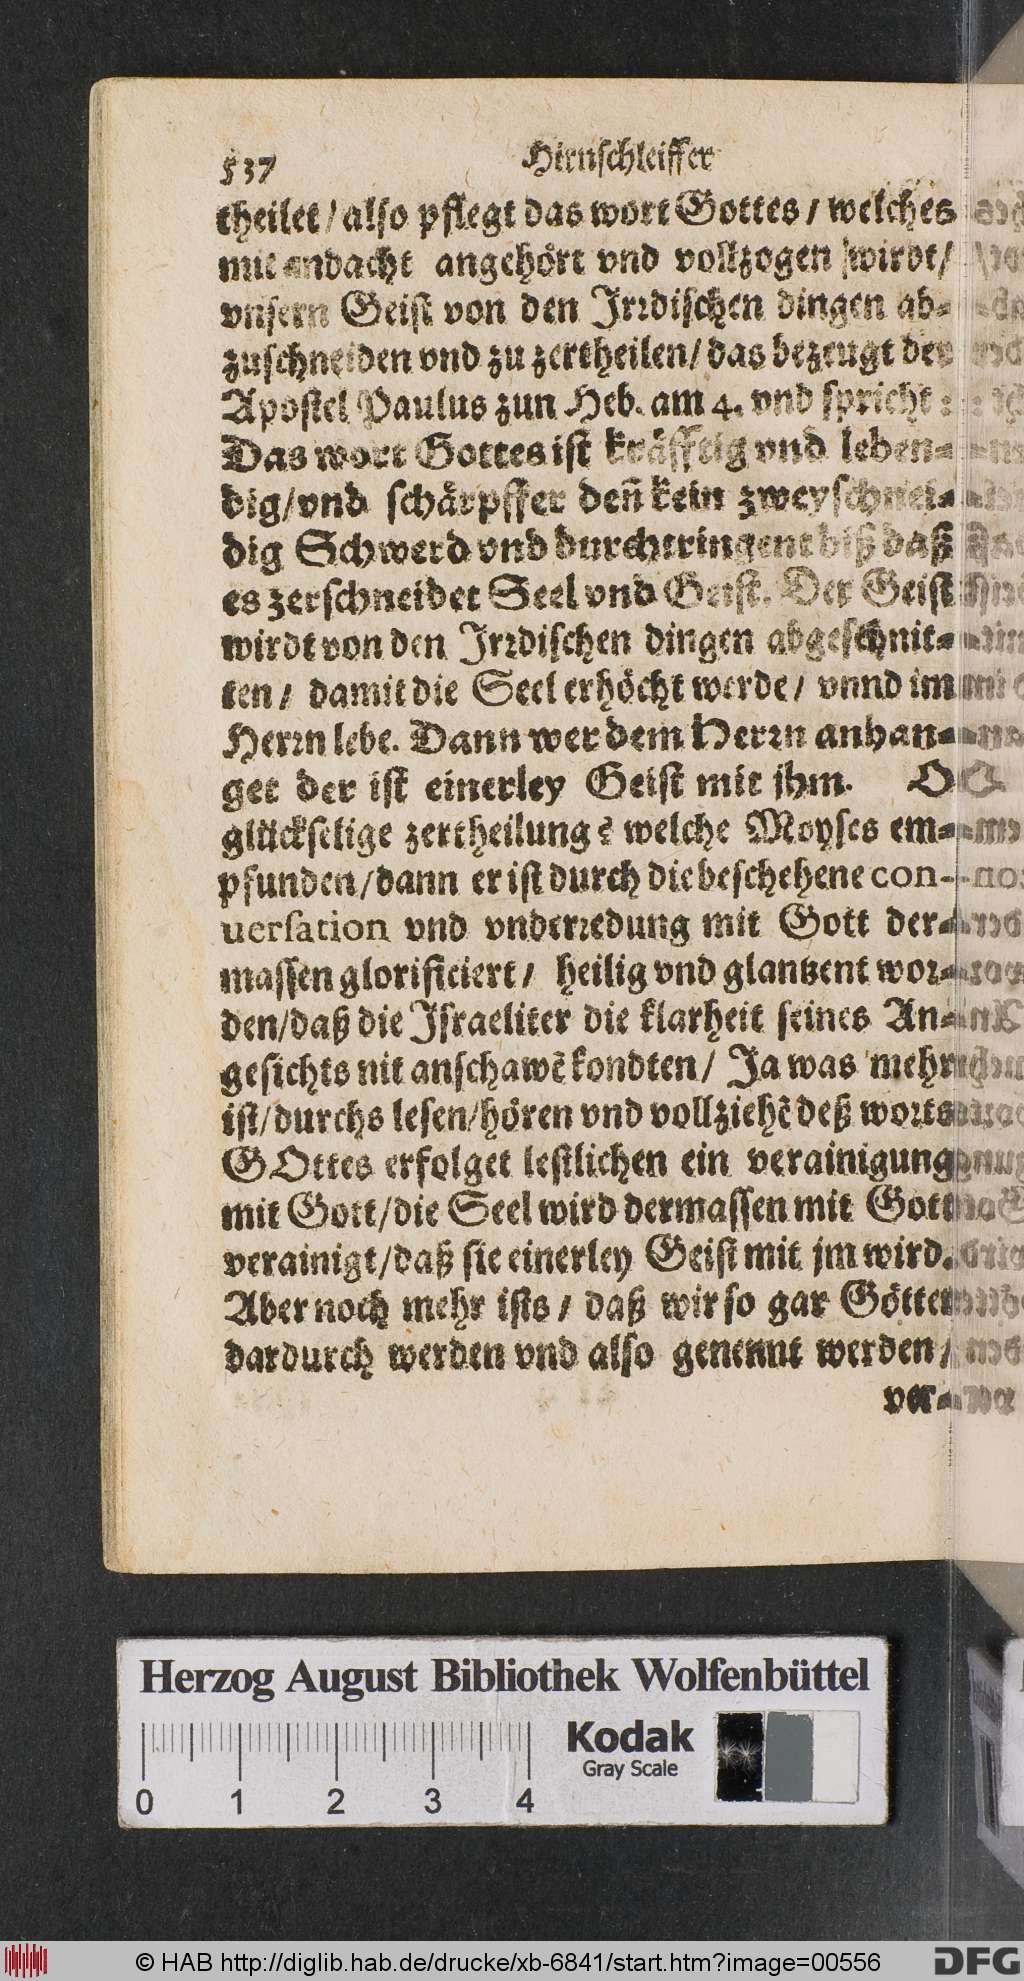 537 Hirnschleiffer
theilet / also pflegt das wort Gottes / welches
mit andacht angehört vnd vollzogen wirdt /
vnsern Geist von den Irrdischen dingen ab-
zuschneiden vnd zu zertheilen / das bezeugt der
Apostel Paulus zun Heb. am 4. vnd spricht :
Das wort Gottes ist kräfftig vnd leben-
dig / vnd schärpffer deñ kein zweyschnei-
dig Schwerd vnd durchtringent biß daß
es zerschneidet Seel vnd Geist. Der Geist
wirdt von den Irrdischen dingen abgeschnit-
ten / damit die Seel erhöcht werde / vnnd im
Herrn lebe. Dann wer dem Herrn anhan-
get der ist einerley Geist mit jhm. O
glückselige zertheilung? welche Moyses em-
pfunden / dann er ist durch die beschehene con-
uersation vnd vnderredung mit Gott der-
massen glorificiert / heilig vnd glantzent wor-
den / daß die Israeliter die klarheit seines An-
gesichts nit anschawẽ kondten / Ja was mehr
ist / durchs lesen / hören vnd vollziehẽ deß worts
GOttes erfolget lestlichen ein verainigung
mit Gott / die Seel wird dermassen mit Gott
verainigt / daß sie einerley Geist mit jm wird.
Aber noch mehr ists / daß wir so gar Götter
dardurch werden vnd also genennt werden /
ver-
Herzog August Bibliothek Wolfenbüttel
Kodak
Gray Scale
0 1 2 3 4
© HAB http://diglib.hab.de/drucke/xb-6841/start.htm?image=00556
DFG